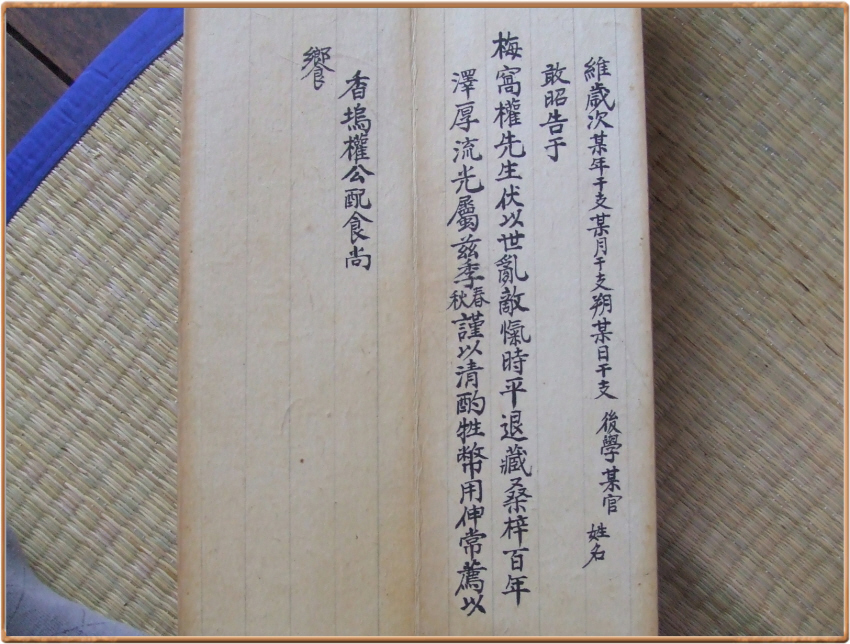 維歲次某年干支某月干支朔某日干支 後學某官 姓名
敢昭告于
梅窩權先生伏以世亂敵愾時平退藏桑梓百年
澤厚流光屬玆季春秋謹以清酌牲幣用伸常薦以
香塢權公配食尚
饗